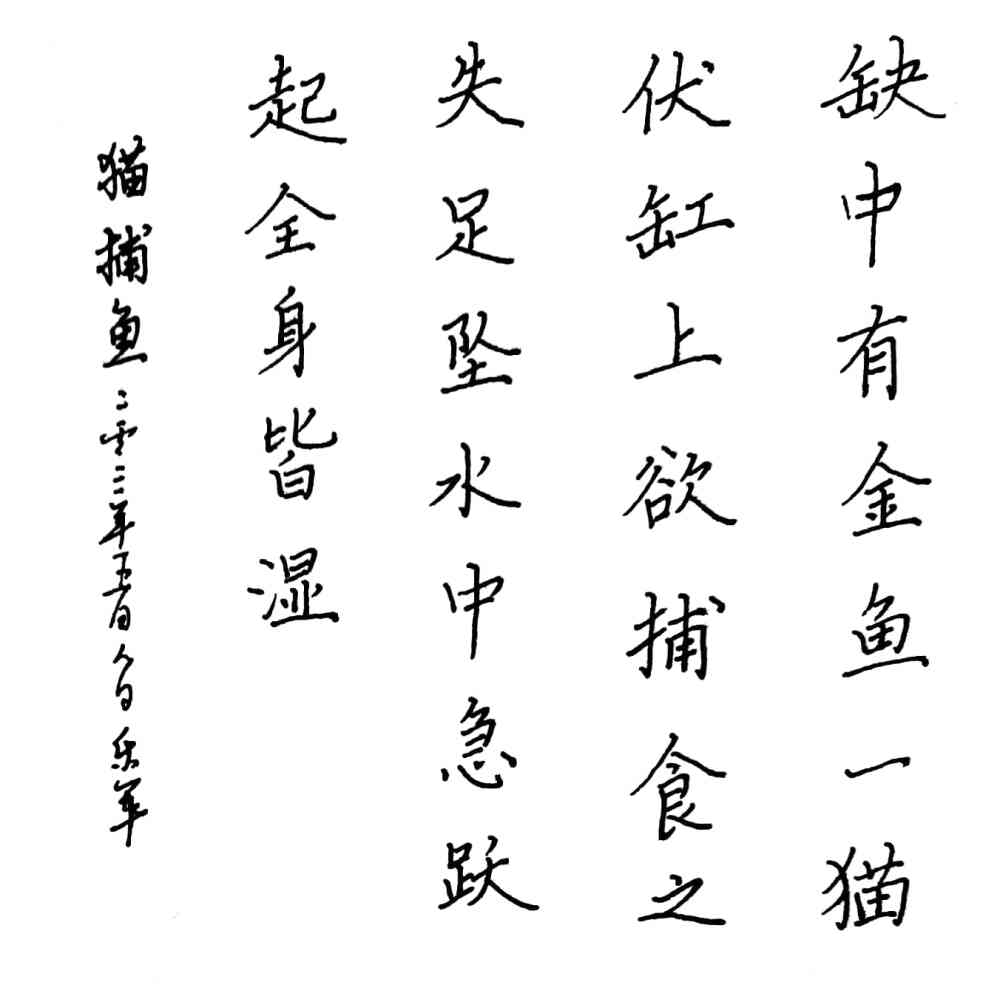 缺中有金鱼一猫
伏缸上欲捕食之
失足坠水中急跃
起全身皆湿
猫捕鱼 二零二三年五月八日 乐军